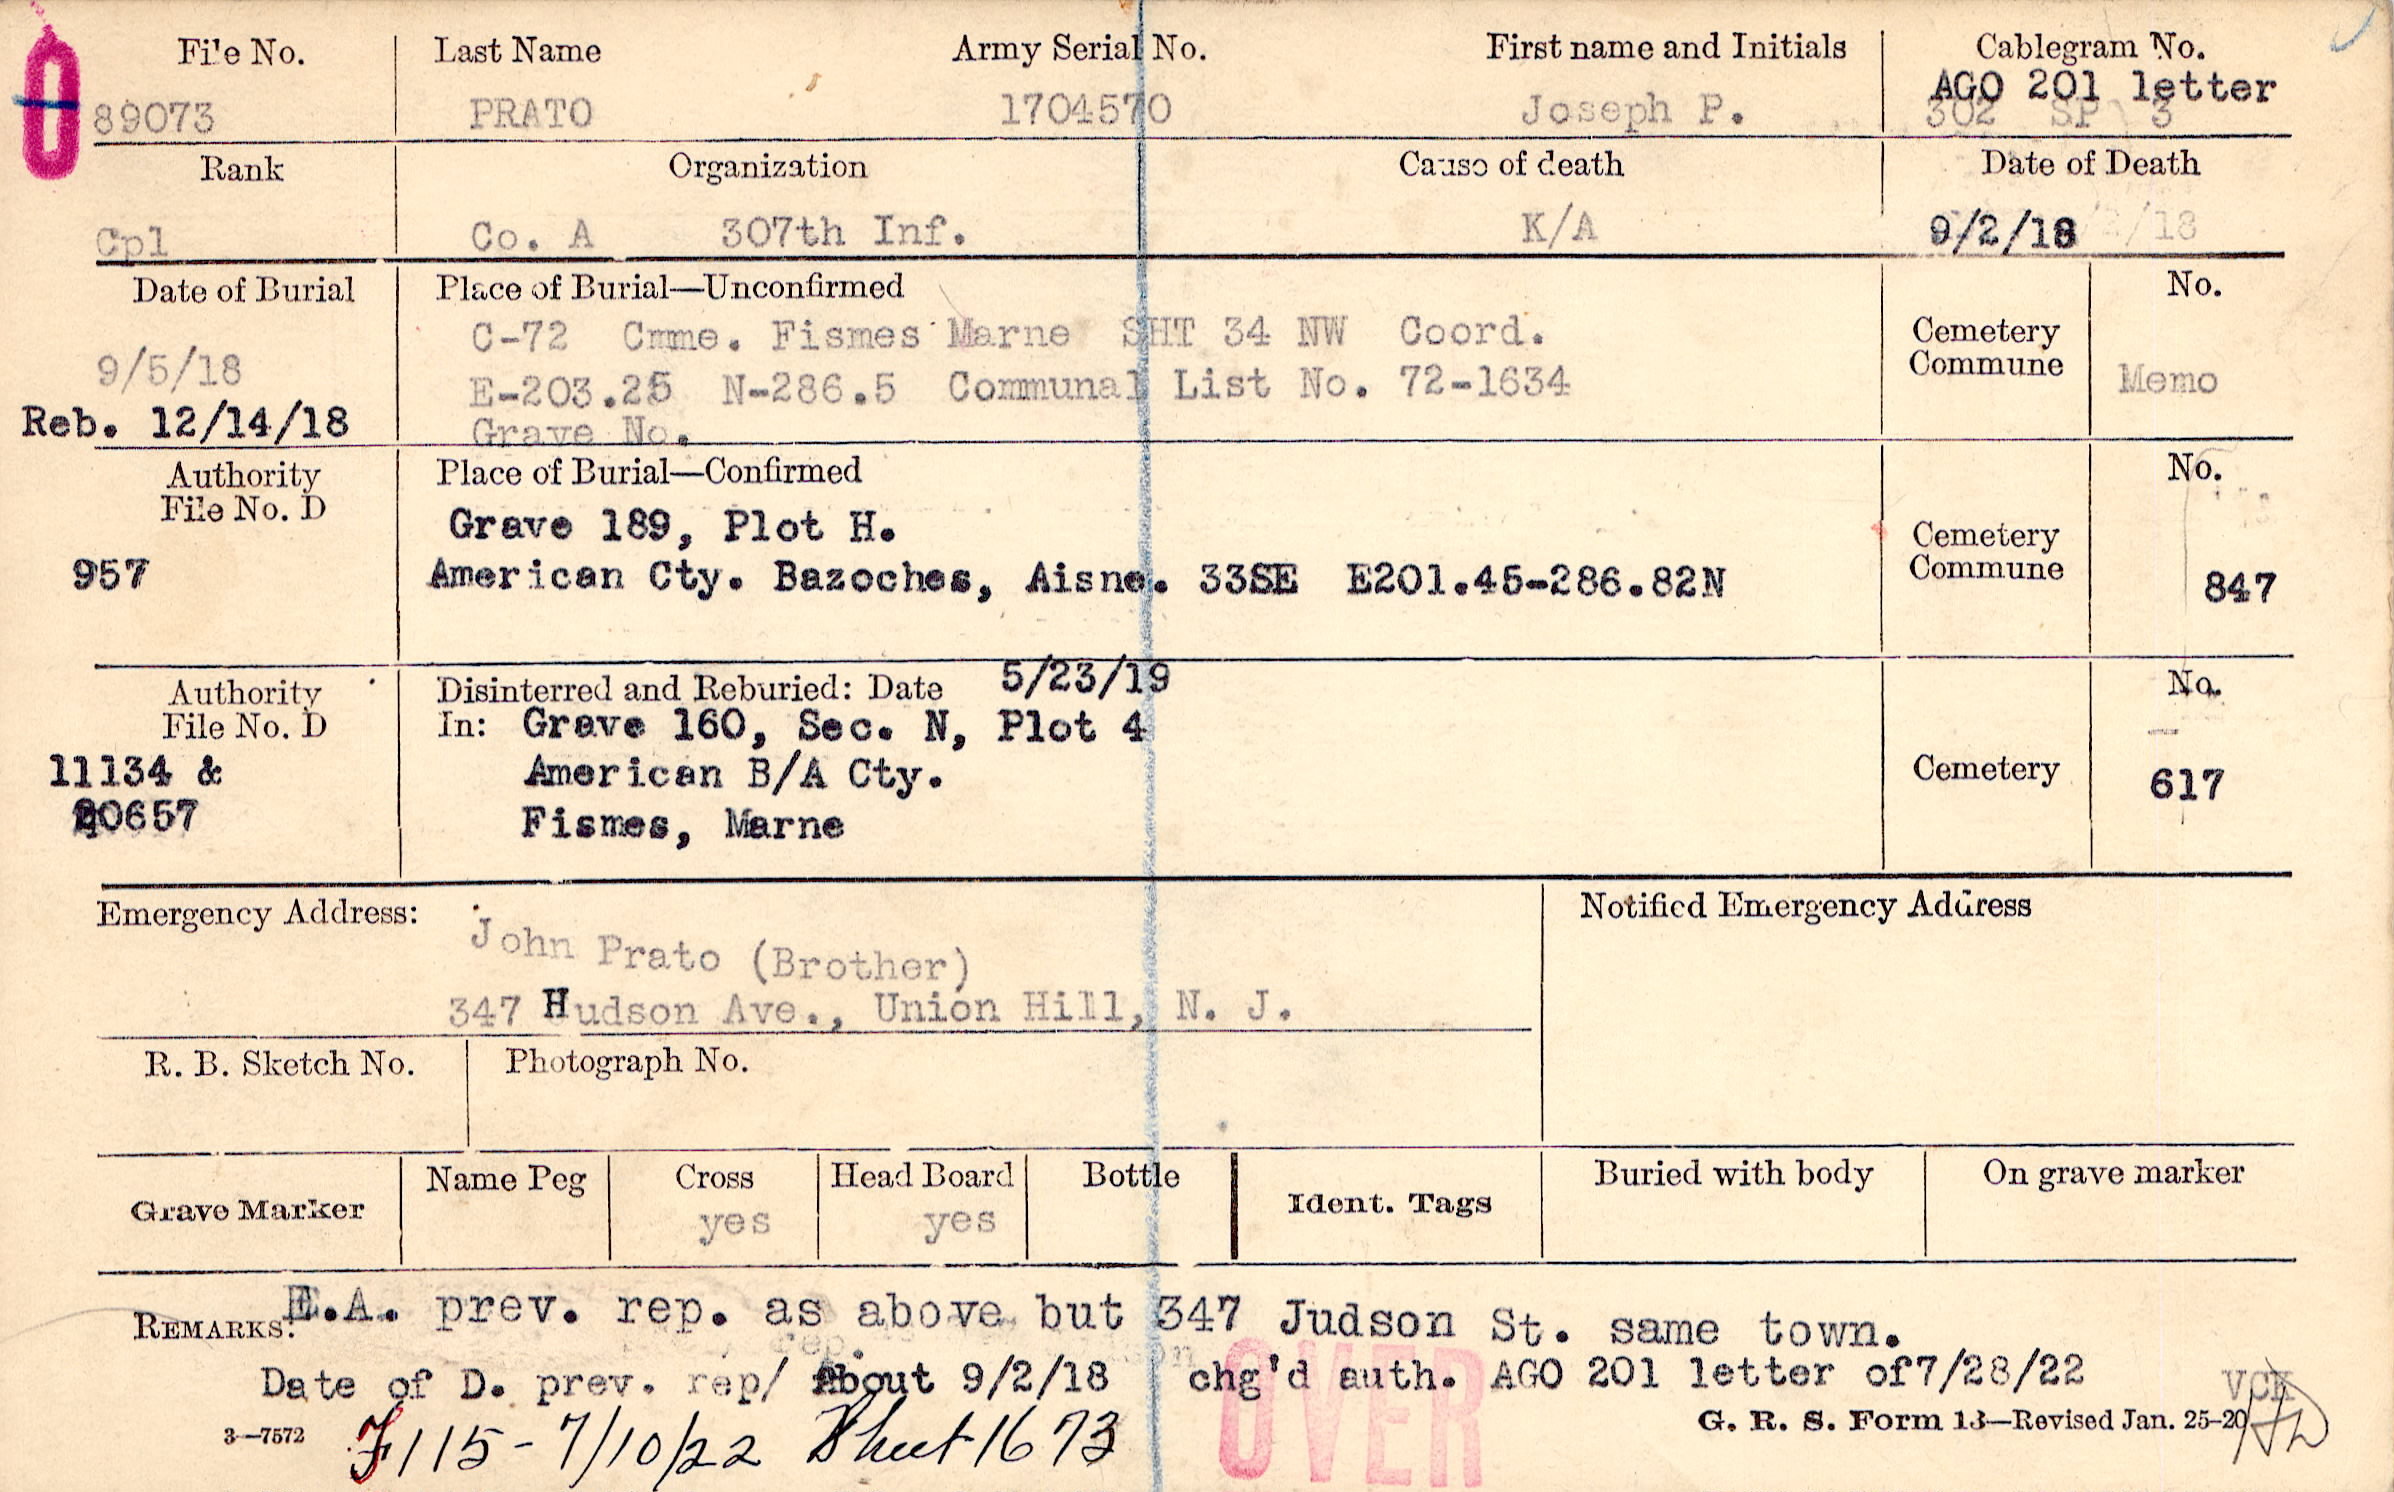 File No. Last Name Army Serial No. First name and Initials Cablegram No.
AGO 201 letter
89073 PRATO 1704570 Joseph P. 302 SP 3
Rank Organization Cause of death Date of Death
Cpl Co. A 307th Inf. K/A 9/2/18
Date of Burial Place of Burial—Unconfirmed No.
C-72 Cmme. Fismes Marne SHT 34 NW Coord. Cemetery
Commune
9/5/18 E-203.25 N-286.5 Communal List No. 72-1634 Memo
Reb. 12/14/18 Grave No.
Authority Place of Burial—Confirmed No.
File No. D
Grave 189, Plot H. Cemetery
957 American Cty. Bazoches, Aisne. 33SE E201.45-286.82N Commune 847
Authority Disinterred and Reburied: Date 5/23/19 No.
File No. D In: Grave 160, Sec. N, Plot 4
11134 & American B/A Cty. Cemetery 617
20657 Fismes, Marne
Emergency Address: John Prato (Brother) Notified Emergency Address
347 Hudson Ave., Union Hill, N. J.
R. B. Sketch No. Photograph No.
Grave Marker Name Peg Cross Head Board Bottle Ident. Tags Buried with body On grave marker
yes yes
REMARKS: E.A. prev. rep. as above but 347 Judson St. same town.
Date of D. prev. rep/ About 9/2/18 chg'd auth. AGO 201 letter of7/28/22 VCK
3—7572 F115-7/10/22 Sheet 1673 OVER G. R. S. Form 13—Revised Jan. 25-20